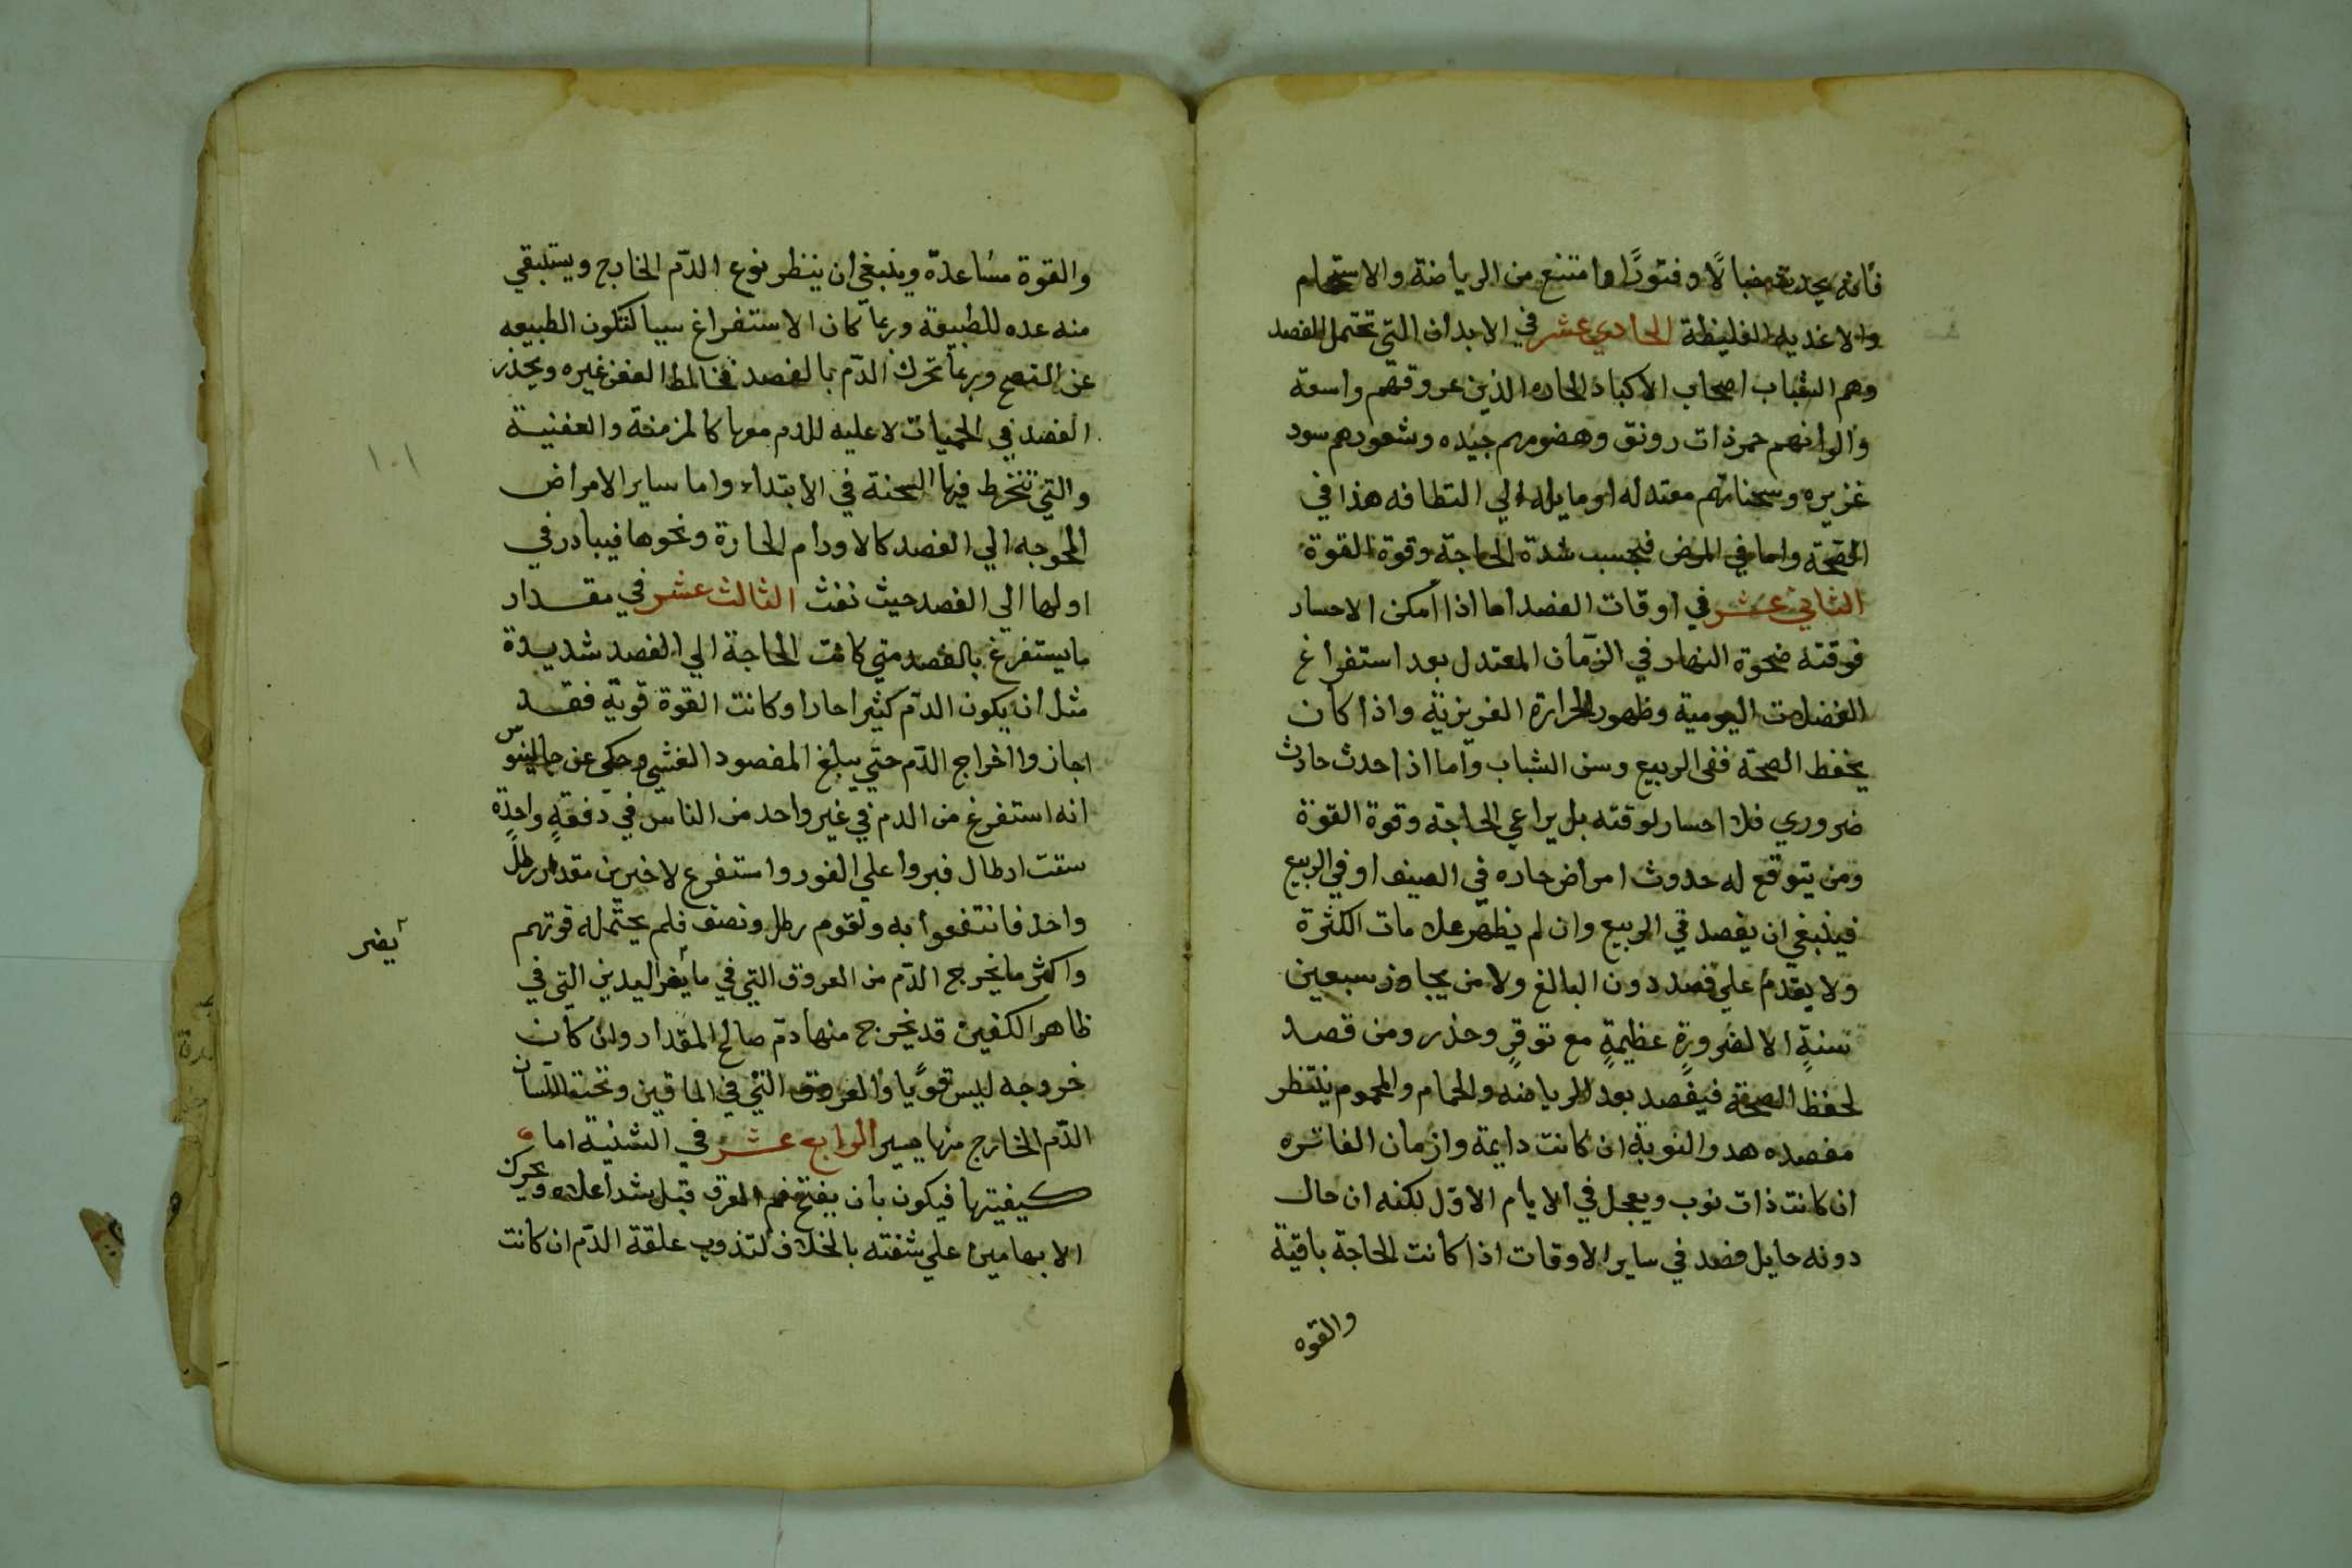 فانه يحدث خبالًا وفتورًا وامتنع من الرياضة والاستحمام
والاغذيه الغليظة الحادي عشر في الابدان التي تحتمل الفصد
وهم الشباب اصحاب الاكباد الحاره الذين عروقهم واسعة
والوانهم حمر ذات رونق وهضومهم جيده وشعورهم سود
غزيره وسحناتهم معتدله او مايله الي القضافه هذا في
الصحة واما في المرض فبحسب شدة الحاجة وقوة القوة
الثاني عشر في اوقات الفصد اما اذا امكن الاحسار
فوقته ضحوة النهار في الزمان المعتدل بعد استفراغ
الفضلات اليومية وظهور الحرارة الغريزية واذا كان
يحفظ الصحة ففي الربيع وسن الشباب واما اذا حدث حادث
ضروري فلا احسار لوقته بل يراعي الحاجة وقوة القوة
ومن يتوقع له حدوث امراض حاره في الصيف او في الربيع
فينبغي ان يفصد في الربيع وان لم يظهر علامات الكثرة
ولا يقدم علي فصد دون البالغ ولا من يجاوز سبعين
سنةٍ الا لضرورةٍ عظيمةٍ مع توقٍ وحذر ومن قصد
لحفظ الصحة فيفصد بعد الرياضه والحمام والمحموم ينتظر
مفصده هدو النوبة ان كانت دايمة وازمان الفاتره
ان كانت ذات نوب ويعجل في الايام الاول لكنه ان حال
دونه حايل فصد في ساير الاوقات اذا كانت الحاجة باقية
والقوه
والقوة مساعدة وينبغي ان ينظر نوع الدم الخارج ويستبقي
منه عده للطبيعة وربما كان الاستفراغ سببا لنكون الطبيعه
عن النضج وربما تحرك الدم بالفصد فخالط العفن غيره ويحذر
الفصد في الحميات لا علبه للدم معها كالمزمنة والعفنية
والتي تنخرط فيها السحنة في الابتداء واما ساير الامراض
المحوجه الي الفصد كالاورام الحارة ونحوها فيبادر في
اولها الي الفصد حيث نفث الثالث عشر في مقدار
ما يستفرغ بالفصد متي كانت الحاجة الي الفصد شديدة
مثل ان يكون الدم كثيرا حارا وكانت القوة قوية فقد
اجازوا اخراج الدم حتي يبلغ المفصود الغشي وحكي عن جالينوس
انه استفرغ من الدم في غير واحد من الناس في دفعةٍ واحدٍة
ستت ارطال فبروا علي الفور واستفرغ لاخرين مقدار رطلٍ
واحد فانتفعوا به ولقوم رطل ونصف فلم يحتمله قوتهم
واكثر ما يخرج الدم من العروق التي في مأيض اليدين التي في
أيضر
ظاهر الكفين قد يخرج منها دم صالح المقدار وان كان
خروجه ليس قويًا والعروق التي في الماقين وتحت اللسان
الدم الخارج منها يسير الرابع عشر في الشنية اما
كيفيتها فيكون بان يفتح فم العرق قبل شد اعلاه ويحرك
الابهامين علي شفته بالخلاف لتذوب علقة الدم ان كانت
١٠١